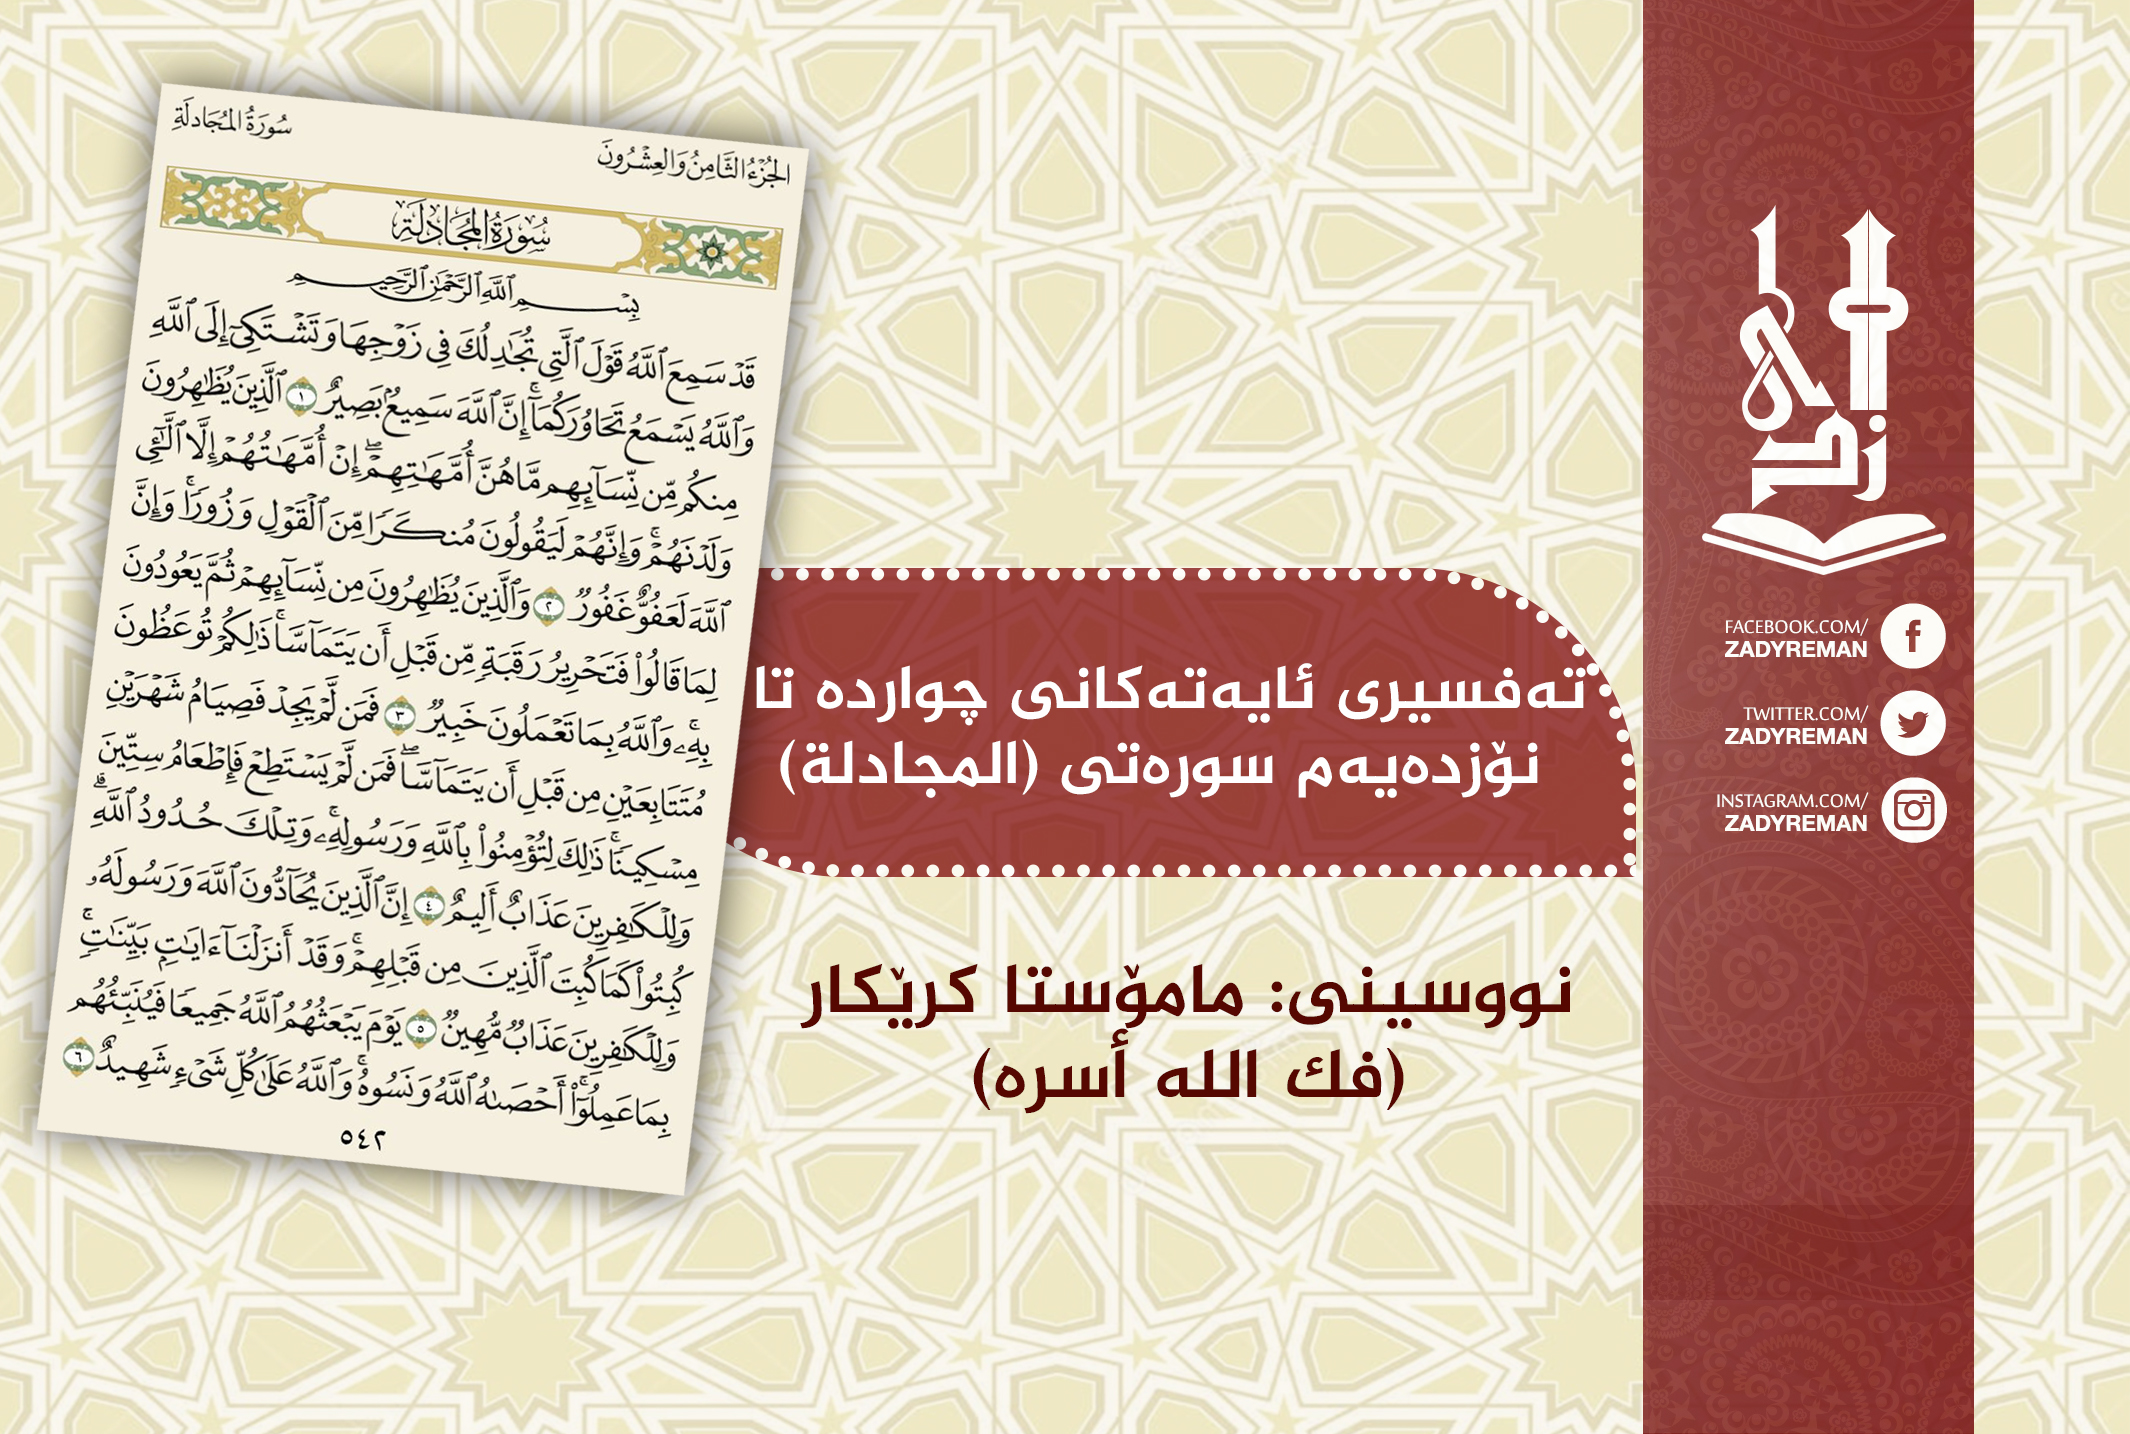 الجُزْءُ الثَّامِنُ وَالعِشْرُونَ
سُورَةُ المُجَادلَةِ
سُورَةُ المُجَادلَةِ
بِسْمِ ٱللَّهِ ٱلرَّحْمَٰنِ ٱلرَّحِيمِ
قَدْ سَمِعَ ٱللَّهُ قَوْلَ ٱلَّتِى تُجَٰدِلُكَ فِى زَوْجِهَا وَتَشْتَكِىٓ إِلَى ٱللَّهِ
وَٱللَّهُ يَسْمَعُ تَحَاوُرَكُمَآ ۚ إِنَّ ٱللَّهَ سَمِيعٌۢ بَصِيرٌ ١ ٱلَّذِينَ يُظَٰهِرُونَ
مِنكُم مِّن نِّسَآئِهِم مَّا هُنَّ أُمَّهَٰتِهِمْ ۖ إِنْ أُمَّهَٰتُهُمْ إِلَّا ٱلَّٰٓـِٔى
وَلَدْنَهُمْ ۚ وَإِنَّهُمْ لَيَقُولُونَ مُنكَرًا مِّنَ ٱلْقَوْلِ وَزُورًا ۚ وَإِنَّ
ٱللَّهَ لَعَفُوٌّ غَفُورٌ ٢ وَٱلَّذِينَ يُظَٰهِرُونَ مِن نِّسَآئِهِمْ ثُمَّ يَعُودُونَ
لِمَا قَالُوا۟ فَتَحْرِيرُ رَقَبَةٍ مِّن قَبْلِ أَن يَتَمَآسَّا ۚ ذَٰلِكُمْ تُوعَظُونَ
بِهِۦ ۚ وَٱللَّهُ بِمَا تَعْمَلُونَ خَبِيرٌ ٣ فَمَن لَّمْ يَجِدْ فَصِيَامُ شَهْرَيْنِ
مُتَتَابِعَيْنِ مِن قَبْلِ أَن يَتَمَآسَّا ۖ فَمَن لَّمْ يَسْتَطِعْ فَإِطْعَامُ سِتِّينَ
مِسْكِينًا ۚ ذَٰلِكَ لِتُؤْمِنُوا۟ بِٱللَّهِ وَرَسُولِهِۦ ۚ وَتِلْكَ حُدُودُ ٱللَّهِ ۗ
وَلِلْكَٰفِرِينَ عَذَابٌ أَلِيمٌ ٤ إِنَّ ٱلَّذِينَ يُحَآدُّونَ ٱللَّهَ وَرَسُولَهُۥ
كُبِتُوا۟ كَمَا كُبِتَ ٱلَّذِينَ مِن قَبْلِهِمْ ۚ وَقَدْ أَنزَلْنَآ ءَايَٰتٍۭ بَيِّنَٰتٍ ۚ
وَلِلْكَٰفِرِينَ عَذَابٌ مُّهِينٌ ٥ يَوْمَ يَبْعَثُهُمُ ٱللَّهُ جَمِيعًا فَيُنَبِّئُهُم
بِمَا عَمِلُوٓا۟ ۚ أَحْصَىٰهُ ٱللَّهُ وَنَسُوهُ ۚ وَٱللَّهُ عَلَىٰ كُلِّ شَىْءٍ شَهِيدٌ ٦
٥٤٢
تەفسیری ئایەتەکانی چواردە تا
نۆزدەیەم سورەتی (المجادلة)
نووسینی: مامۆستا کرێکار
(فك الله أسره)
زادی
FACEBOOK.COM/
ZADYREMAN
TWITTER.COM/
ZADYREMAN
INSTAGRAM.COM/
ZADYREMAN